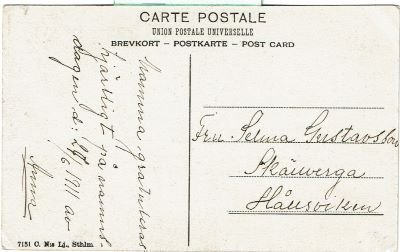 CARTE POSTALE
UNION POSTALE UNIVERSELLE
BREVKORT - POSTKARTE - POST CARD
Mamma gratuleras
hjärtligt på namns-
dagen d: 21/6 1911 av
Anna
Fru Selma Gustavsson
Skäverga
Håusviken
7151 C. N:s Lj., Sthlm.